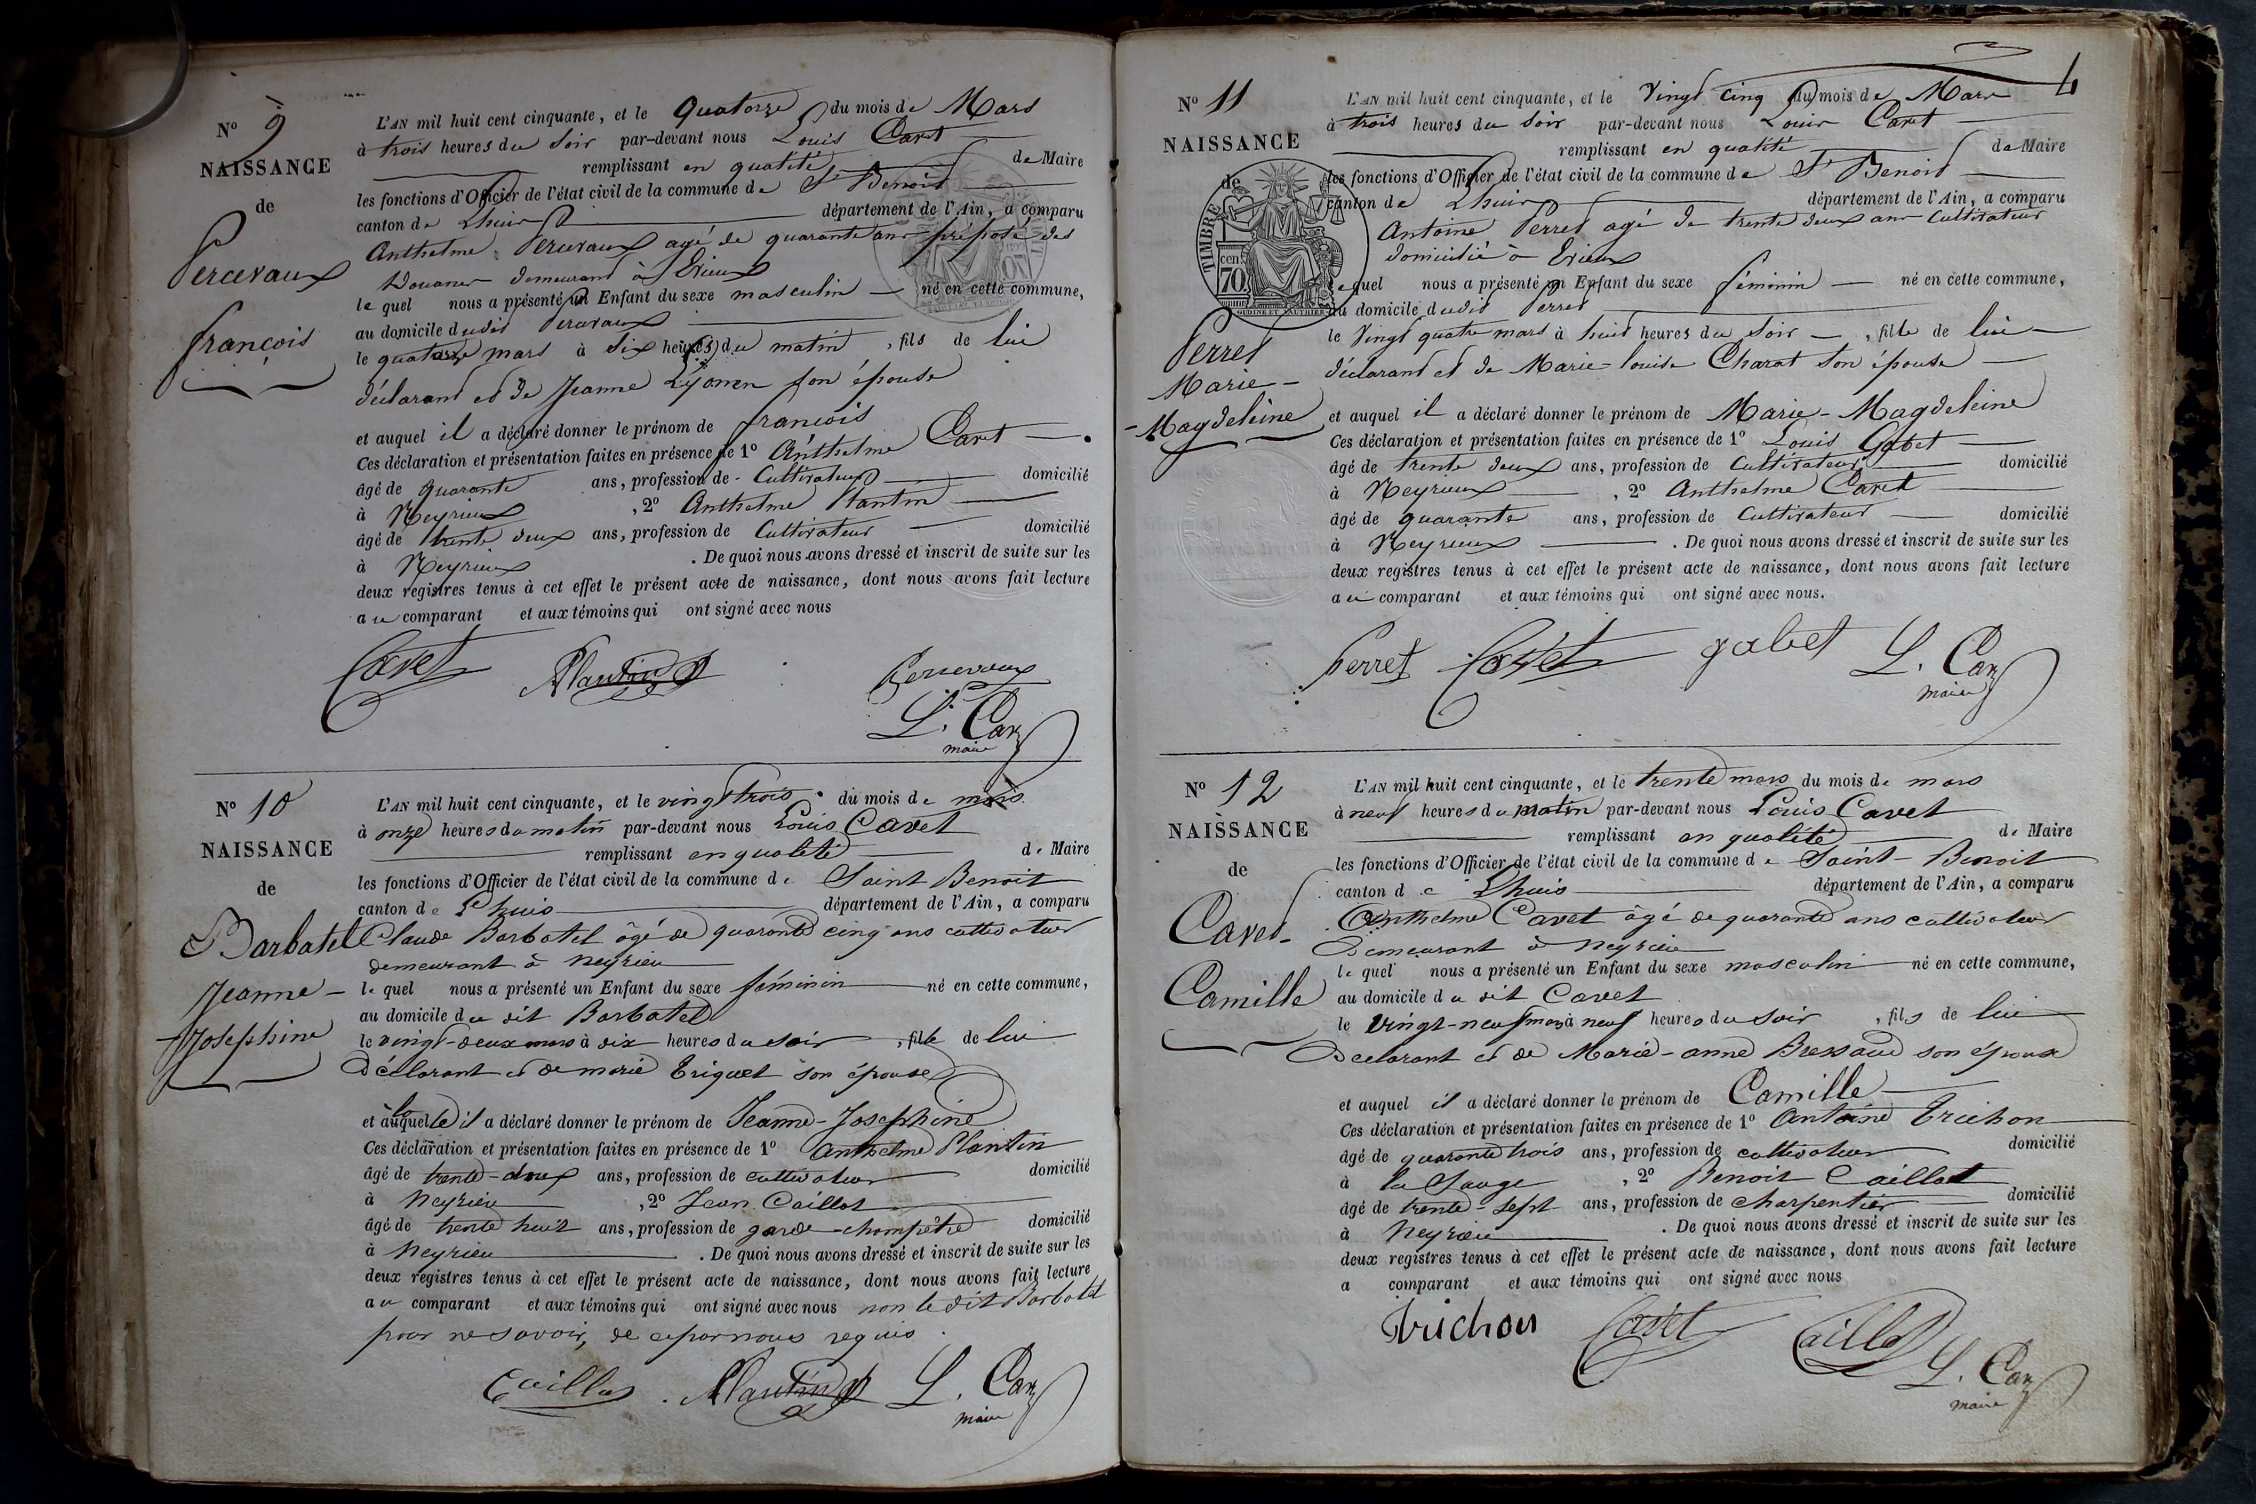 N° 9
NAISSANCE
de
Percevaux
françois
L'AN mil huit cent cinquante, et le Quatorze du mois de Mars
à trois heures du Soir par-devant nous Louis Cavet
remplissant en qualité de Maire
les fonctions d'Officier de l'état civil de la commune de St Benoit
canton de Lhuis département de l'Ain, a comparu
Anthelme Percevaux agé de quarante ans préposé des
Douanes demeurant à Evieux
le quel nous a présenté un Enfant du sexe masculin né en cette commune,
au domicile dudit Percevaux
le quatorze mars à Six heures du matin, fils de lui
déclarant et de Jeanne son épouse
et auquel il a déclaré donner le prénom de françois
Ces déclaration et présentation faites en présence de 1° Anthelme Cavet
âgé de quarante ans, profession de Cultivateur domicilié
à Neyrieux, 2° Anthelme Plantin
âgé de trente deux ans, profession de Cultivateur domicilié
à Neyrieux. De quoi nous avons dressé et inscrit de suite sur les
deux registres tenus à cet effet le présent acte de naissance, dont nous avons fait lecture
au comparant et aux témoins qui ont signé avec nous
Cavet Plantin Percevaux
L. Cavet
maire
N° 10
NAISSANCE
de
Barbatel
Jeanne-
Josephine
L'AN mil huit cent cinquante, et le vingt trois du mois de mars
à onze heures du matin par-devant nous Louis Cavet
remplissant en qualité de Maire
les fonctions d'Officier de l'état civil de la commune de Saint Benoit
canton de Lhuis département de l'Ain, a comparu
Claude Barbatel âgé de quarante cinq ans cultivateur
demeurant à Neyrieu
le quel nous a présenté un Enfant du sexe féminin né en cette commune,
au domicile du dit Barbatel
le vingt-deux mars à dix heures du soir, fille de lui
Déclarant et de marie Triquet son épouse
et à laquelle il a déclaré donner le prénom de Jeanne-Josephine
Ces déclaration et présentation faites en présence de 1° Anthelme Plantin
âgé de trente-deux ans, profession de cultivateur domicilié
à Neyrieu, 2° Jean Caillot
âgé de trente huit ans, profession de garde-champêtre domicilié
à Neyrieu. De quoi nous avons dressé et inscrit de suite sur les
deux registres tenus à cet effet le présent acte de naissance, dont nous avons fait lecture
au comparant et aux témoins qui ont signé avec nous non le dit Barbatel
pour ne savoir, de ce par nous requis
Caillot Plantin L. Cavet
maire
N° 11
NAISSANCE
de
TIMBRE
70
Perret
Marie-
Magdeleine
L'AN mil huit cent cinquante, et le Vingt cinq du mois de Mars
à trois heures du Soir par-devant nous Louis Cavet
remplissant en qualité de Maire
les fonctions d'Officier de l'état civil de la commune de St Benoit
canton de Lhuis département de l'Ain, a comparu
Antoine Perret agé de trente deux ans Cultivateur
domicilié à Evieux
lequel nous a présenté un Enfant du sexe féminin né en cette commune,
au domicile dudit Perret
le Vingt quatre mars à huit heures du Soir, fille de lui
déclarant et de Marie-louise Charat Son épouse
et auquel il a déclaré donner le prénom de Marie-Magdeleine
Ces déclaration et présentation faites en présence de 1° Louis Gabet
âgé de trente deux ans, profession de Cultivateur domicilié
à Neyrieux, 2° Anthelme Cavet
âgé de quarante ans, profession de Cultivateur domicilié
à Neyrieux. De quoi nous avons dressé et inscrit de suite sur les
deux registres tenus à cet effet le présent acte de naissance, dont nous avons fait lecture
au comparant et aux témoins qui ont signé avec nous.
Perret Cavet gabet L. Cavet
maire
N° 12
NAISSANCE
de
Cavet-
Camille
L'AN mil huit cent cinquante, et le trente mars du mois de mars
à neuf heures du matin par-devant nous Louis Cavet
remplissant en qualité de Maire
les fonctions d'Officier de l'état civil de la commune de Saint-Benoit
canton de Lhuis département de l'Ain, a comparu
Anthelme Cavet âgé de quarante ans cultivateur
Demeurant à Neyrieu
le quel nous a présenté un Enfant du sexe masculin né en cette commune,
au domicile du dit Cavet
le vingt-neuf mars à neuf heures du soir, fils de lui
Declarant et de Marie-anne Bressand son épouse
et auquel il a déclaré donner le prénom de Camille
Ces déclaration et présentation faites en présence de 1° Antoine Trichon
âgé de quarante trois ans, profession de cultivateur domicilié
à la Sauge, 2° Benoit Caillot
âgé de trente-sept ans, profession de charpentier domicilié
à Neyrieu. De quoi nous avons dressé et inscrit de suite sur les
deux registres tenus à cet effet le présent acte de naissance, dont nous avons fait lecture
a comparant et aux témoins qui ont signé avec nous
Trichon Cavet Caillot
L. Cavet
maire